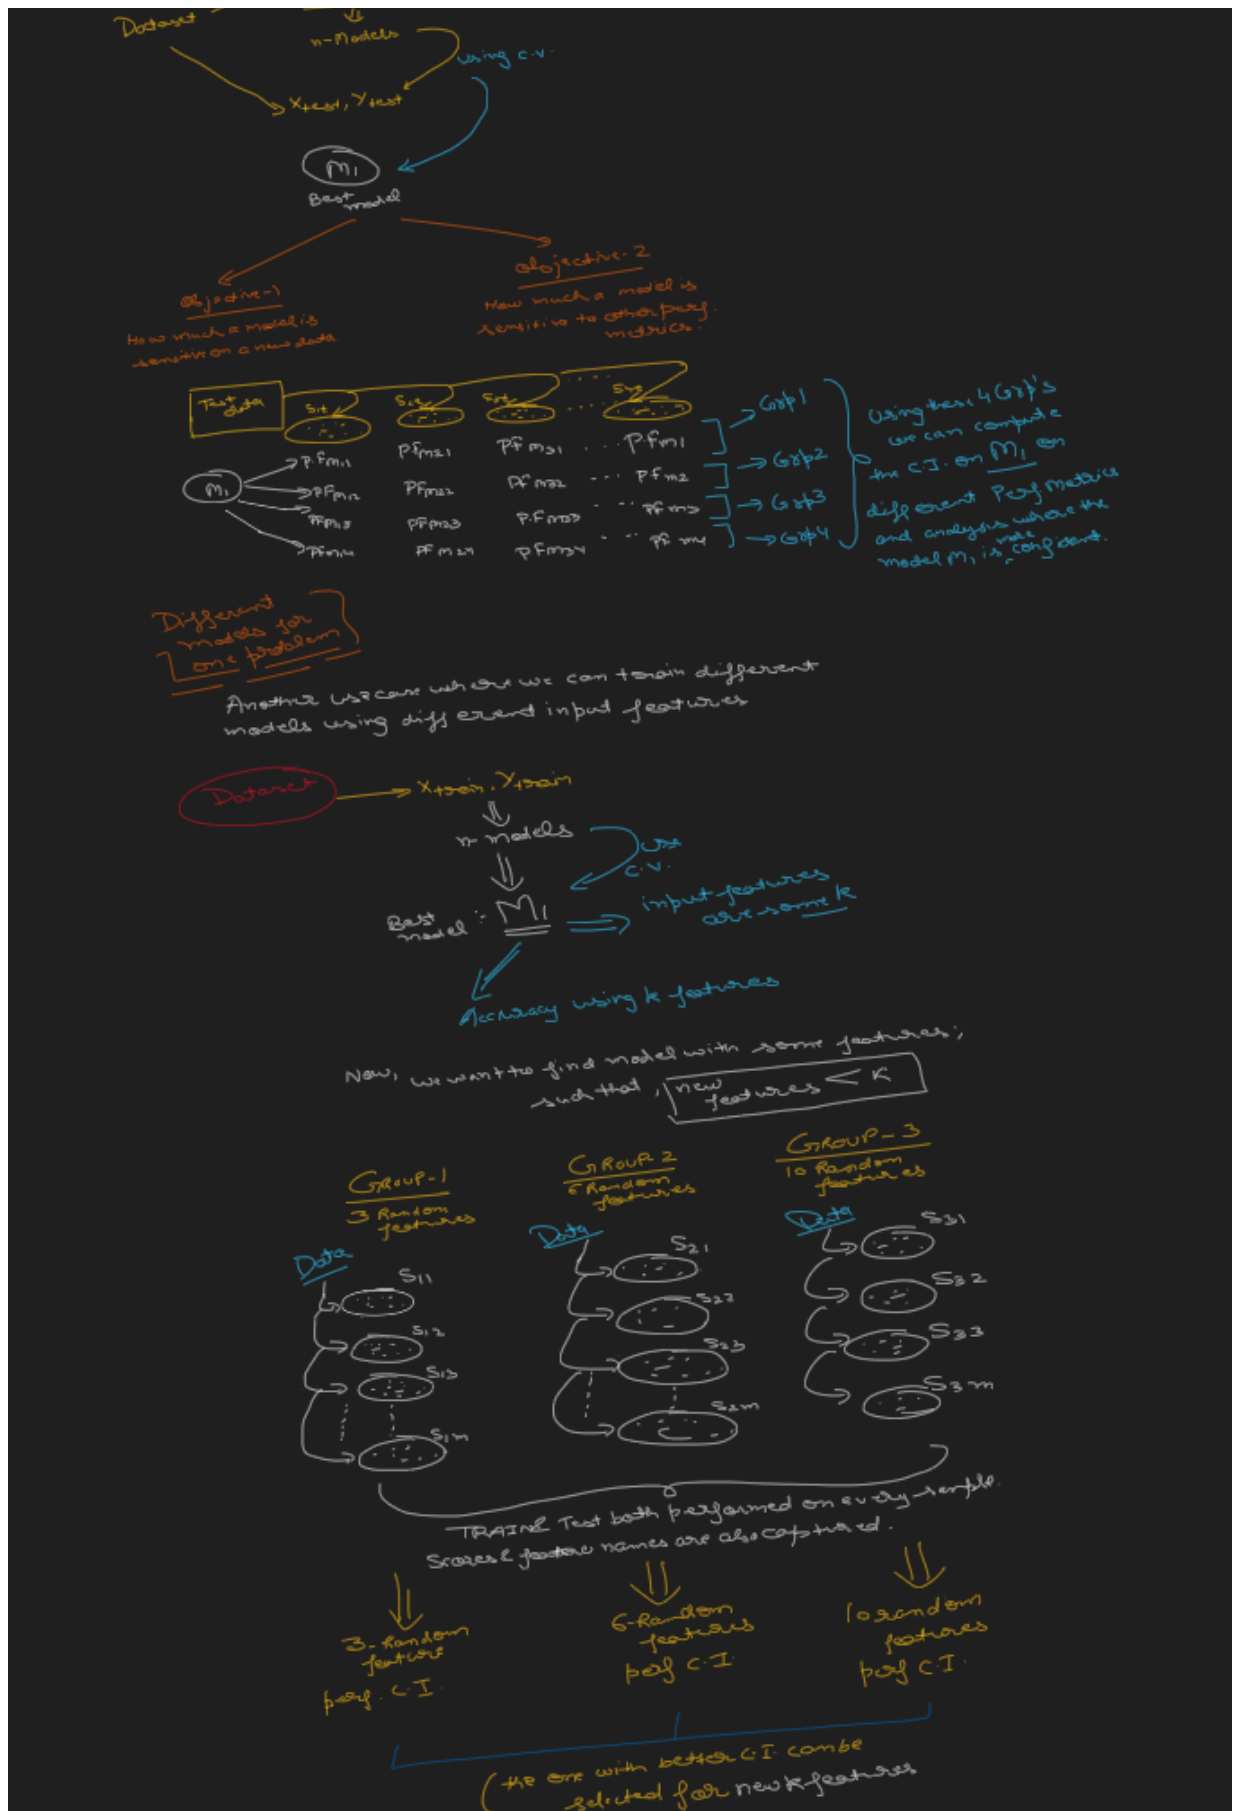 Dataset
n-Models
using c.v.
Xtest, Ytest
M1
Best
model
Objective-1
How much a model is
sensitive on a new data.
Objective-2
How much a model is
sensitive to other perf.
metrics.
Test
data
S1t
S2t
S3t
.....
M1
P.Fm11 PFm21 PFm31 ... PFm1
PFm12 PFm22 PFm32 ... PFm2
PFm13 PFm23 P.Fm33 ... PFm3
PFm14 PFm24 PFm34 ... PFm4
Grp1
Grp2
Grp3
Grp4
Using these 4 Grp's
we can compute
the C.I. on M1 on
different Perf Metrics
and analysis where the
model M1 is more confident.
Different
models for
one problem
Another usecase where we can train different
models using different input features
Dataset
Xtrain, Ytrain
n-models
use
c.v.
Best
model :- M1
input features
are some k
Accuracy using k features
Now, we want to find model with some features;
such that, new
features < K
GROUP-1
3 Random
features
GROUP-2
6 Random
features
GROUP-3
10 Random
features
Data
S11
S12
S13
S1m
Data
S21
S22
S23
S2m
Data
S31
S32
S33
S3m
TRAIN & Test both performed on every sample.
Scores & feature names are also captured.
3-Random
feature
perf. C.I.
6-Random
features
perf C.I.
10 random
features
perf C.I.
(the one with better C.I. can be
selected for new k features